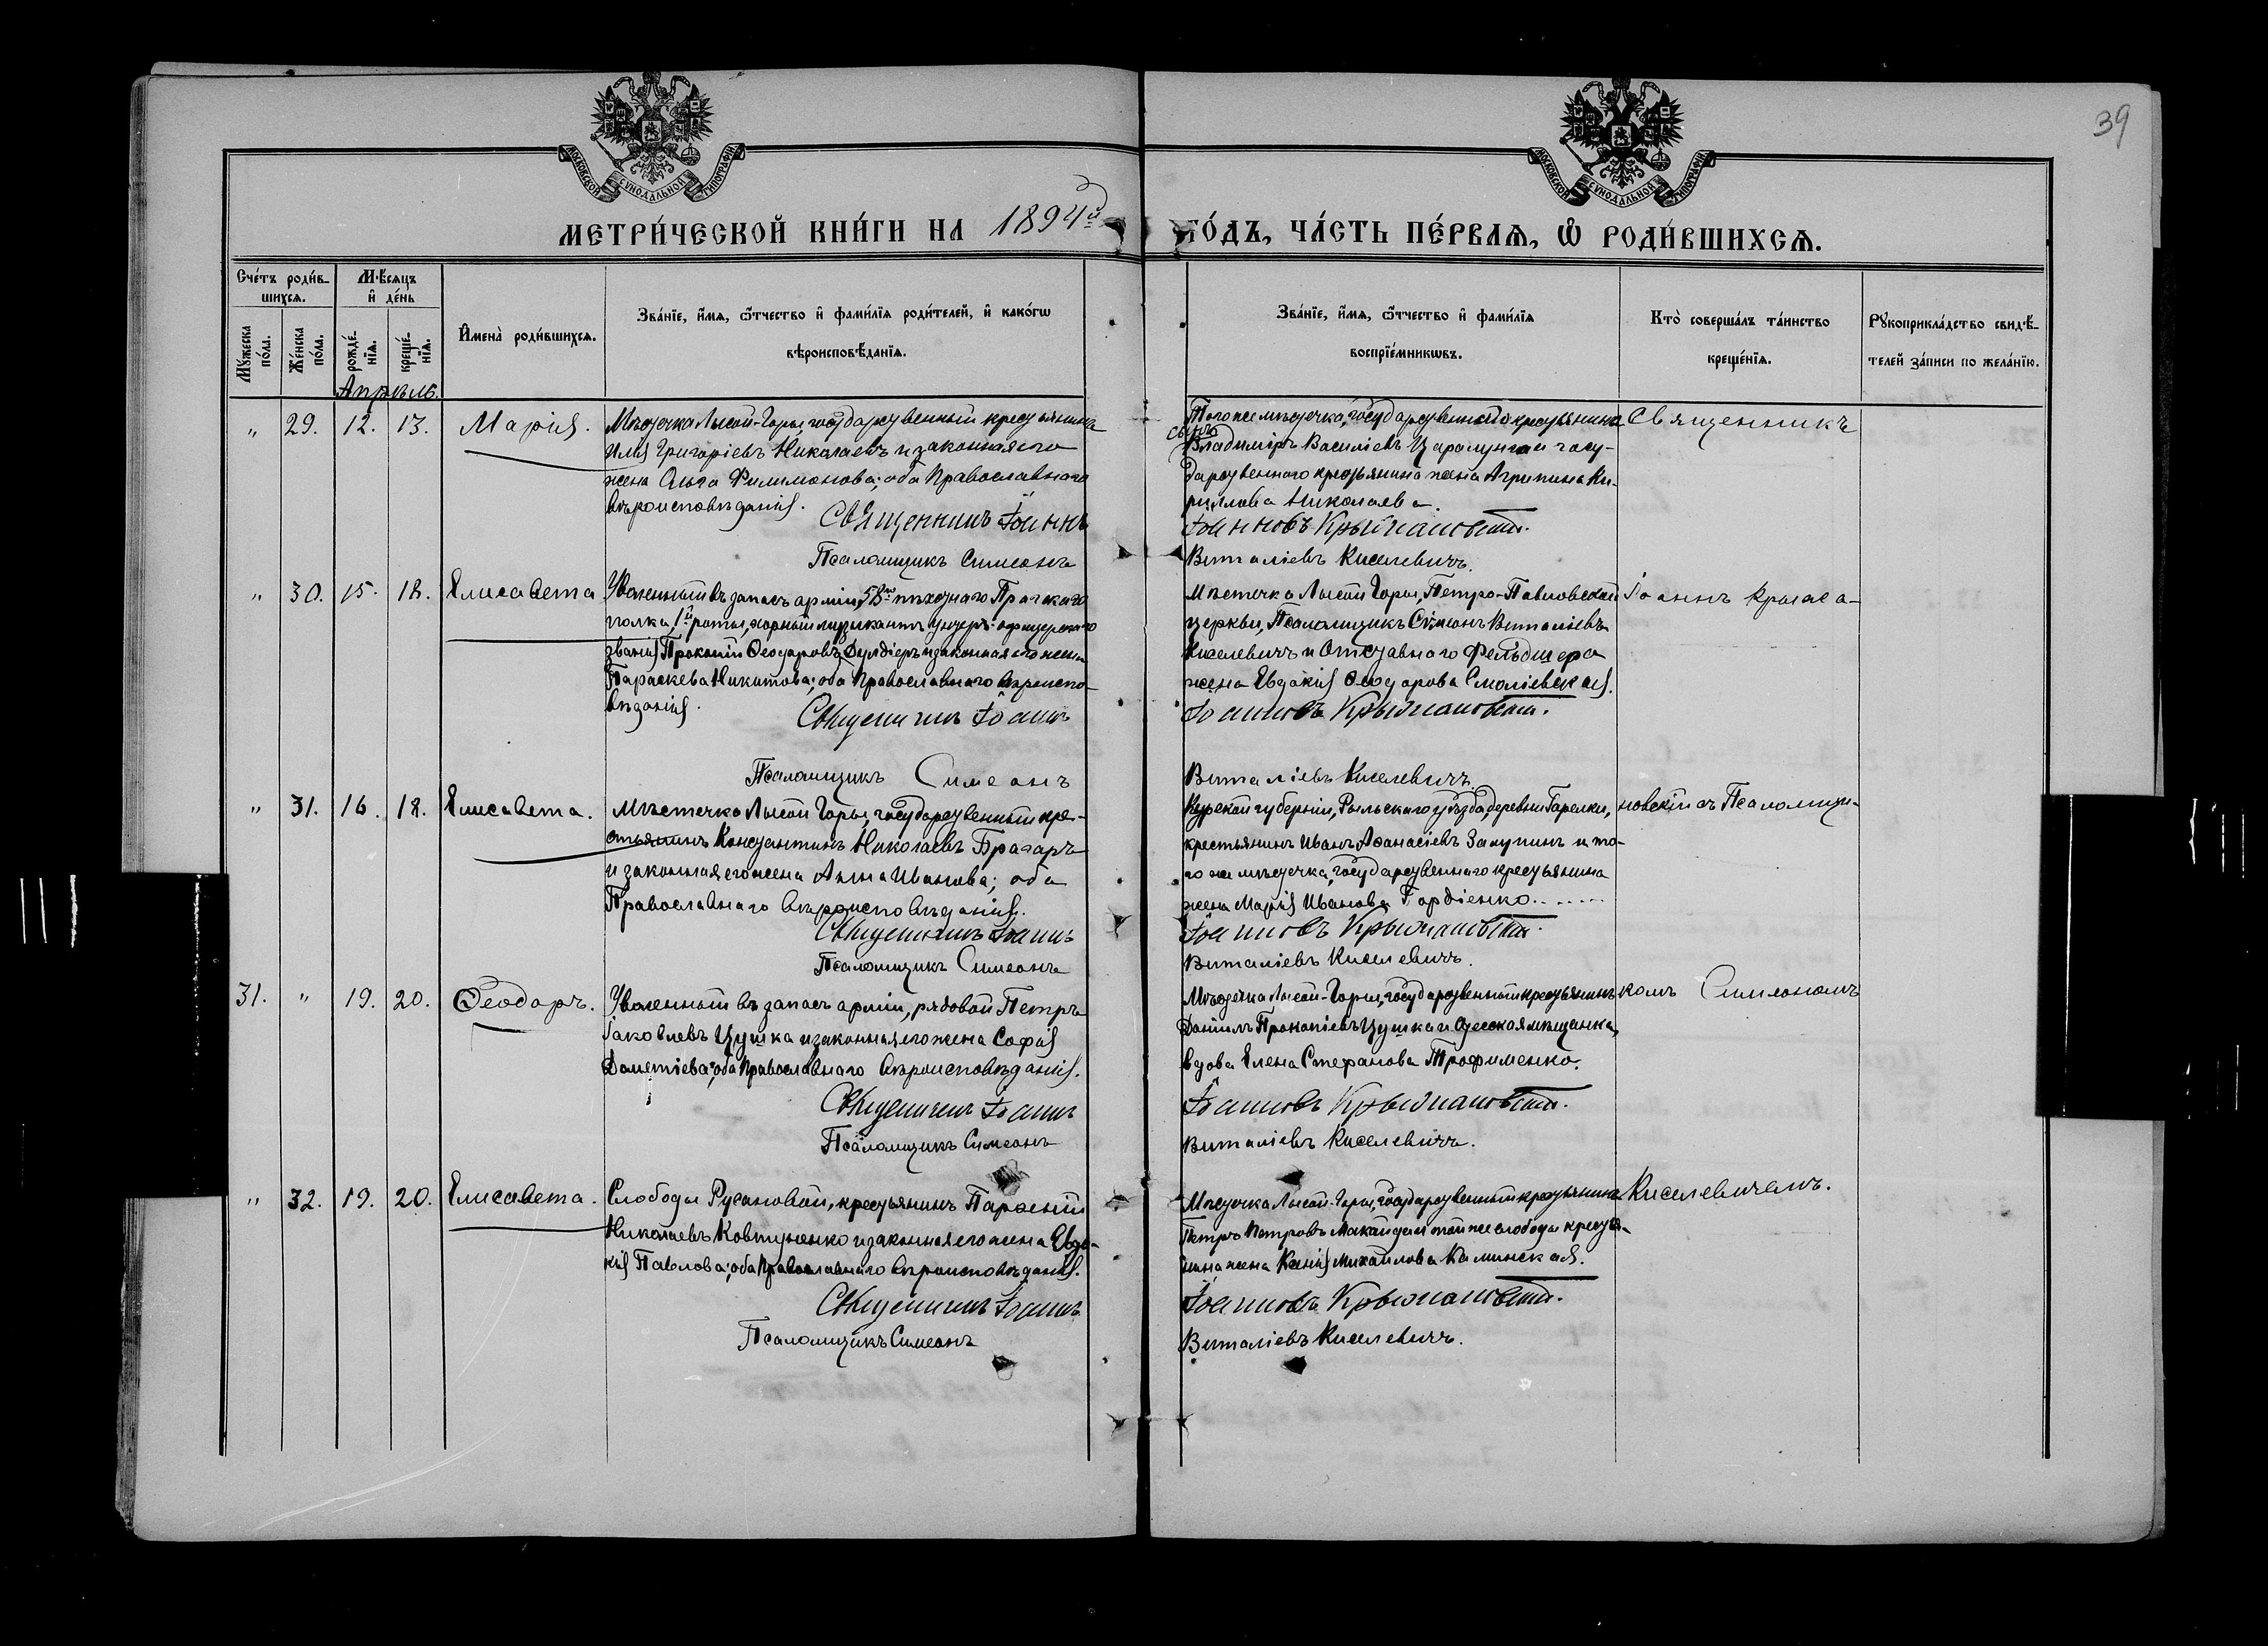 39
МОСКОВСКОЙ СѴНОДАЛЬНОЙ ТИПОГРАФІИ
МОСКОВСКОЙ СѴНОДАЛЬНОЙ ТИПОГРАФІИ
МЕТРИ́ЧЕСКОЙ КНИ́ГИ НА 1894й ГО́ДЪ, ЧА́СТЬ ПЕ́РВАѦ, Ѡ҆ РОДИ́ВШИХСѦ.
Сче́тъ роди́в-
шихсѧ.
Мꙋ́жеска
по́ла.
Же́нска
по́ла.
Мѣ́сяцъ
и҆ де́нь
рожде́-
нїѧ.
креще́-
нїѧ.
И҆мена̀ роди́вшихсѧ.
Зва́нїе, и҆́мѧ, ѻ҆́тчество и҆ фами́лїѧ роди́телей, и҆ како́гѡ
вѣроисповѣ́данїѧ.
Зва́нїе, и҆́мѧ, ѻ҆́тчество и҆ фами́лїѧ
воспрїе́мникѡвъ.
Кто̀ соверша́лъ та́инство
креще́нїѧ.
Рꙋкоприкла́дство свидѣ́-
телей за́писи по жела́нїю.
Апрѣль.
" 29. 12. 13. Марія.
Мѣстечка Лысой-Горы, государственный крестьянинъ
Илія Григоріевъ Николаевъ и законная его
жена Ольга Филимонова; оба Православнаго
вѣроисповѣданія.
Священникъ Іоаннъ
Псаломщикъ Симеонъ
Того же мѣстечка, государственнаго крестьянина
сынъ
Владиміръ Василіевъ и госу-
дарственнаго крестьянина жена Агрипина Ки-
риллова Николаева.
Іоанновъ Крыжановскій.
Виталіевъ Киселевичъ.
Священникъ
" 30. 15. 18. Елисавета
Уволенный въ запасъ арміи, 58го пѣхотнаго Прагскаго
полка, 1й роты, хорный музыкантъ унтеръ-офицерскаго
званія Прокопій Ѳеодоровъ и законная его жена
Параскева Никитова; оба Православнаго вѣроиспо-
вѣданія.
Священникъ Іоаннъ
Псаломщикъ Симеонъ
Мѣстечка Лысой Горы, Петро-Павловской
церкви, Псаломщикъ Симеонъ Виталіевъ
Киселевичъ и Отставнаго Фельдшера
жена Евдокія Ѳеодорова Смоліевская.
Іоанновъ Крыжановскій.
Виталіевъ Киселевичъ.
Іоаннъ Крыжа-
" 31. 16. 18. Елисавета.
Мѣстечка Лысой Горы, государственный кре-
стьянинъ Константинъ Николаевъ Брагарь
и законная его жена Анна Иванова; оба
Православнаго вѣроисповѣданія.
Священникъ Іоаннъ
Псаломщикъ Симеонъ
Курской губерніи, Рыльскаго уѣзда, деревни Гарелки,
крестьянинъ Иванъ Аѳанасіевъ Залупинъ и то-
го же мѣстечка, государственнаго крестьянина
жена Марія Иванова Гордіенко.......
Іоанновъ Крыжановскій.
Виталіевъ Киселевичъ.
новскій съ Псаломщи-
31. " 19. 20. Ѳеодоръ.
Уволенный въ запасъ арміи, рядовой Петръ
Іаковлевъ Цушка и законная его жена Софія
Дометіева; оба Православнаго вѣроисповѣданія.
Священникъ Іоаннъ
Псаломщикъ Симеонъ
Мѣстечка Лысой-Горы, государственный крестьянинъ
Даніилъ Прокопіевъ Цушка и Одесская мѣщанка,
вдова Елена Стефанова Трофименко.
Іоанновъ Крыжановскій.
Виталіевъ Киселевичъ.
комъ Симеономъ
" 32. 19. 20. Елисавета.
Слободы Русановой, крестьянинъ Парѳеній
Николаевъ Ковтуненко и законная его жена Евдо-
кія Павлова; оба Православнаго вѣроисповѣданія.
Священникъ Іоаннъ
Псаломщикъ Симеонъ
Мѣстечка Лысой-Горы, государственный крестьянинъ
Петръ Петровъ и той же слободы крестья-
нина жена Ксенія Михайлова Калинская.
Іоанновъ Крыжановскій.
Виталіевъ Киселевичъ.
Киселевичемъ.